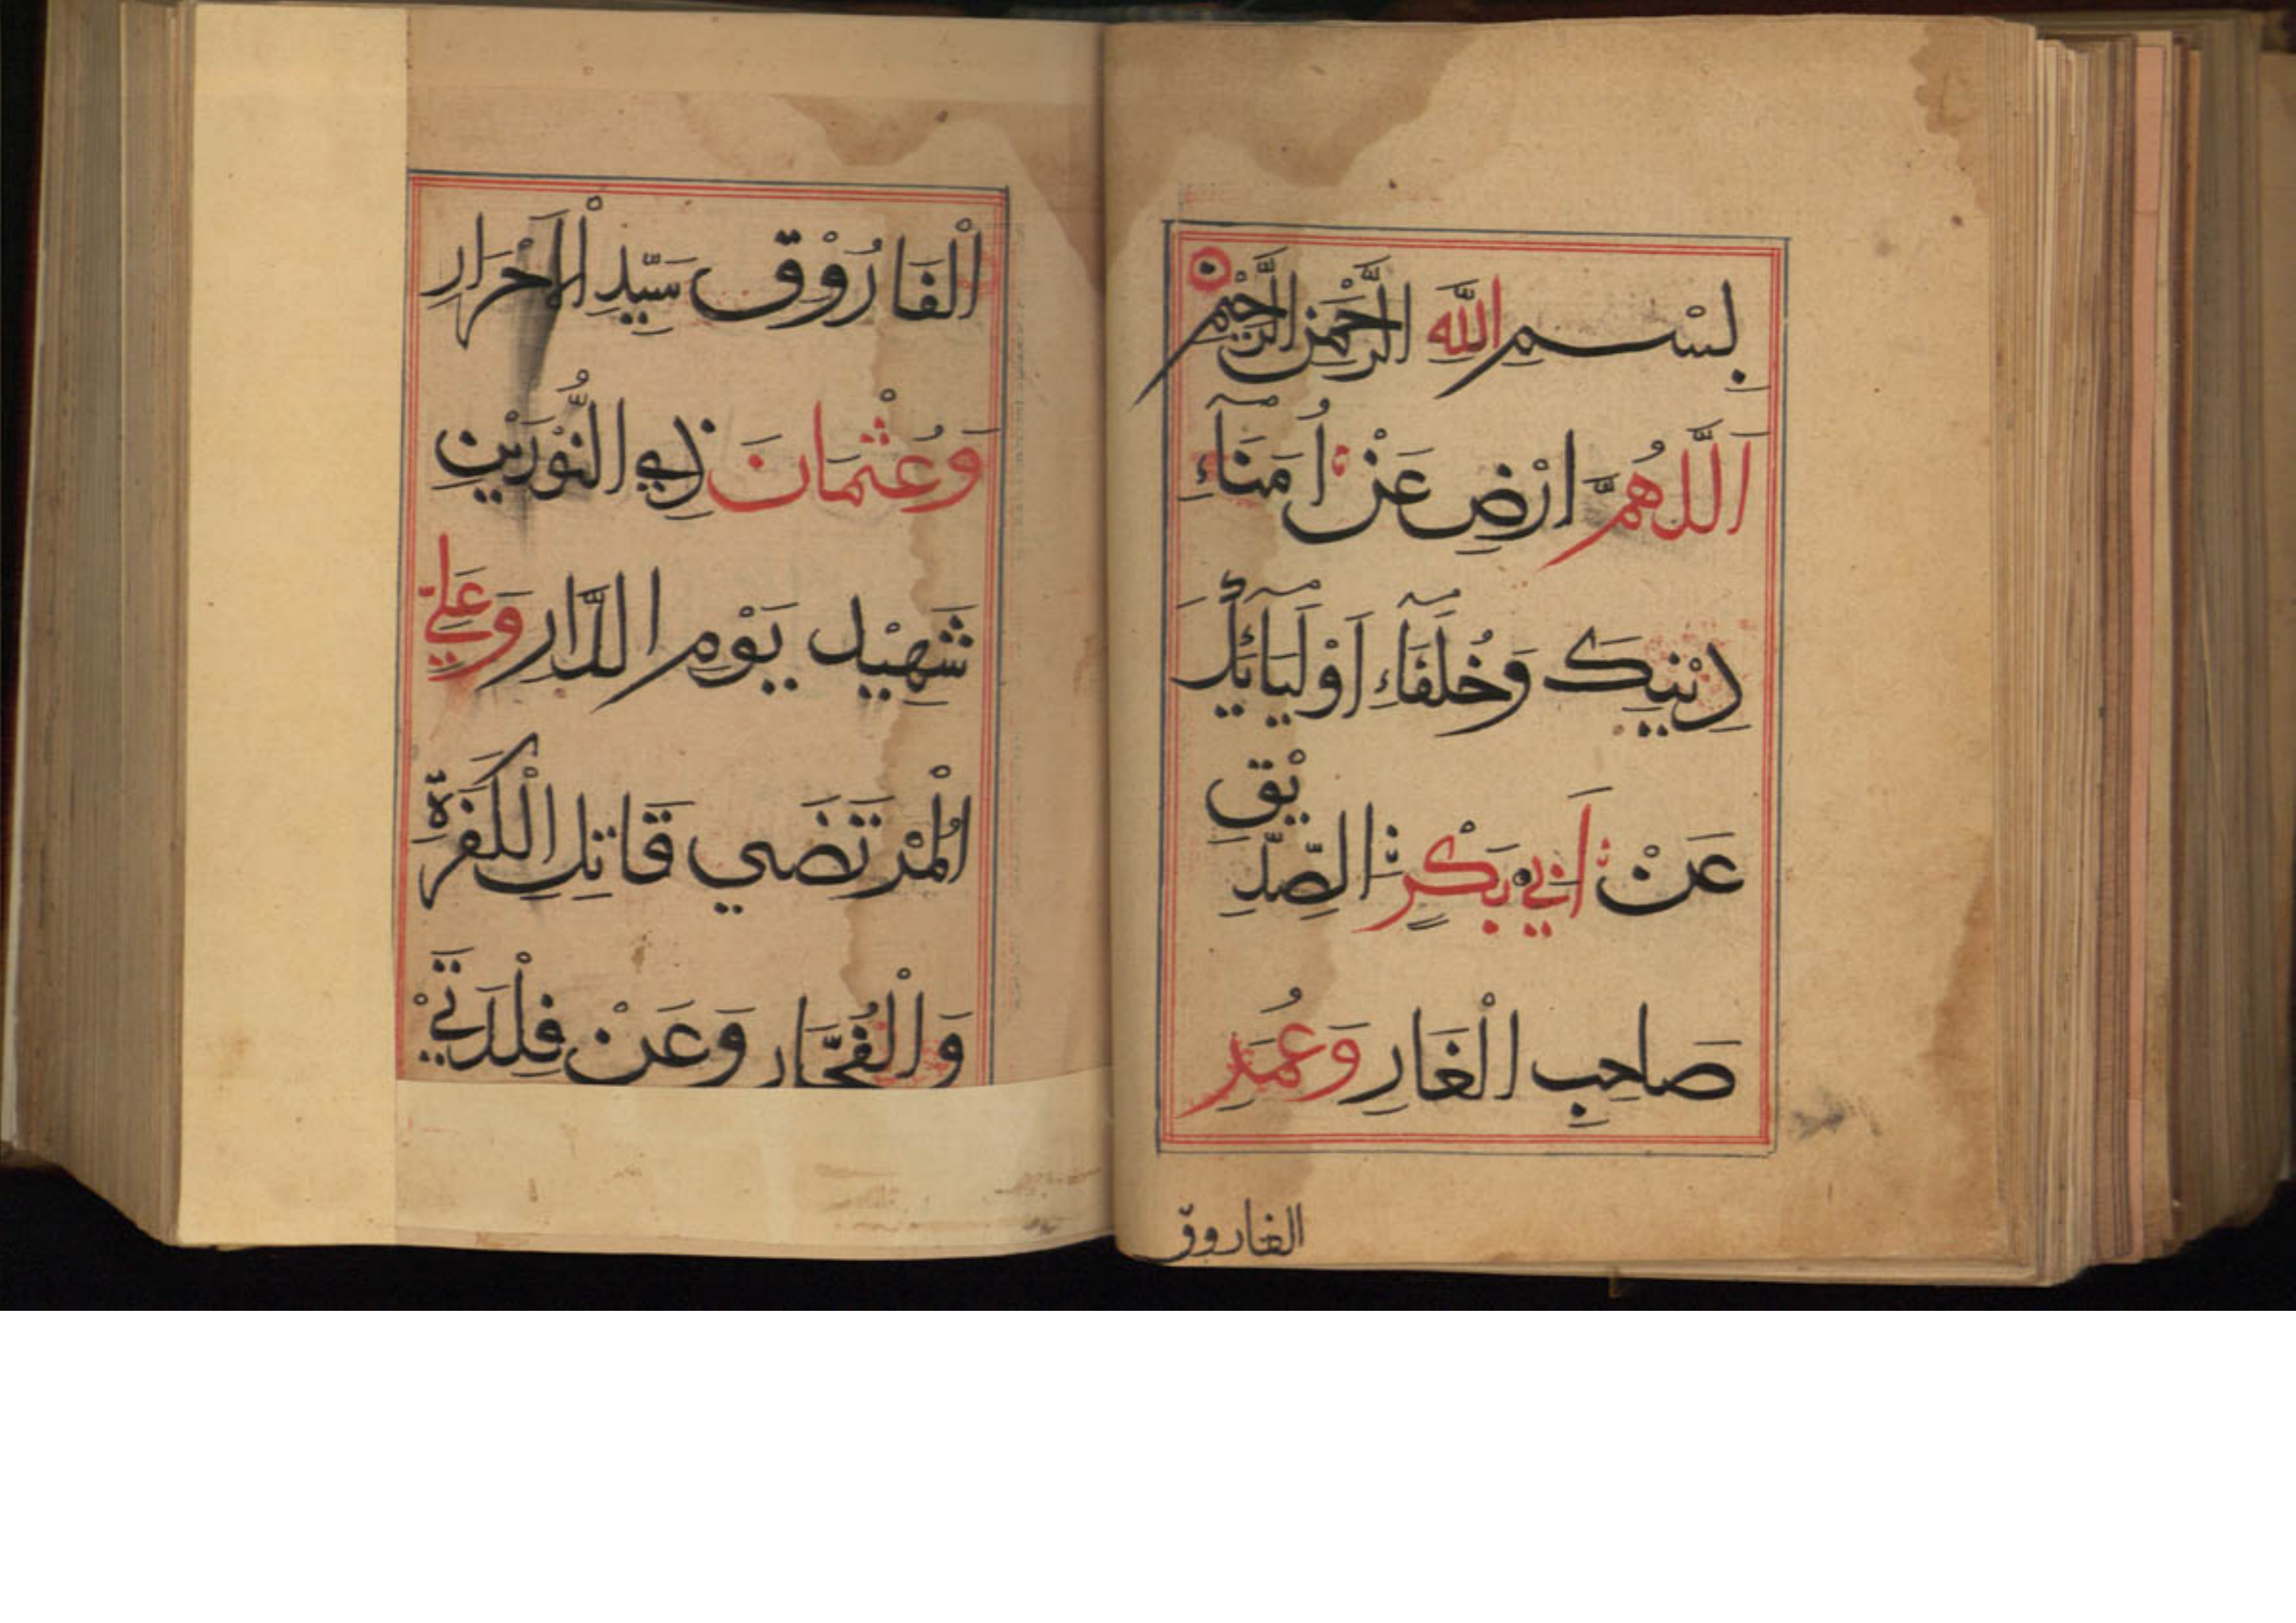 بِسْمِ اللَّهِ الرَّحْمٰنِ الرَّحِيْمِ
اَللَّهُمَّ ارْضِ عَنْ اُمَنَآءِ
دِيْنِيكَ وَخُلَفَآءِ اَوْلِيَآئِكَ
عَنْ اَبِي بَكْرٍ الصِّدِّيْقِ
صَاحِبِ الْغَارِ وَعُمَرِ
الفاروق
الْفَارُوْقِ سَيِّدِ الْاَحْرَارِ
وَعُثْمَانَ ذِي النُّوْرَيْنِ
شَهِيْدِ يَوْمِ الدَّارِ وَعَلِيِّ
الْمُرْتَضَي قَاتِلِ الْكَفَرَةِ
وَالْفُجَّارِ وَعَنْ فِلْذَتَيْ